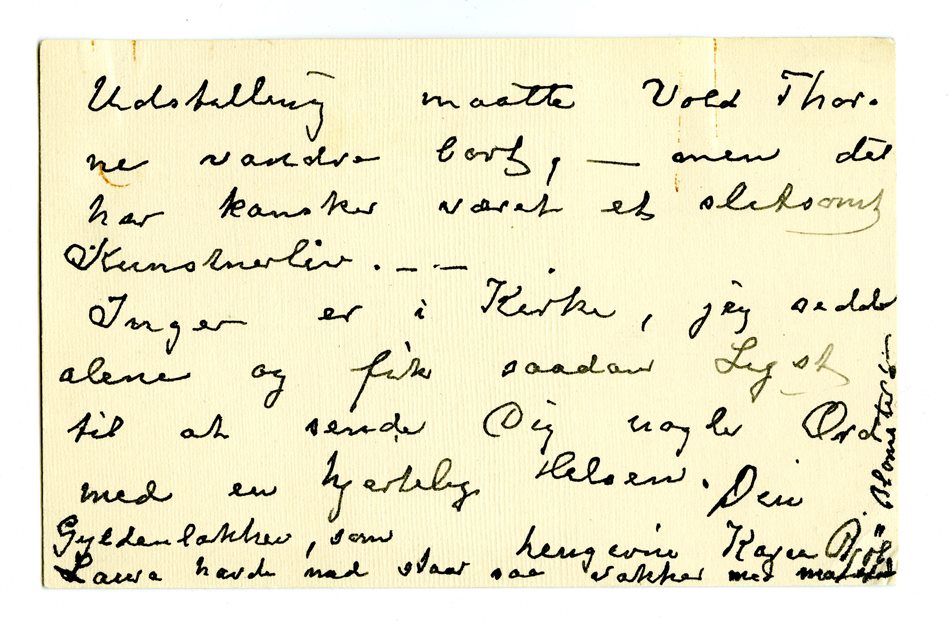 Udstilling maatte Vold Thor-
ne vandre bort, — men det
har kansker været et slitsomt
Kunstnerliv. - - -
Inger er i Kirke, jeg sidder
alene og fik saadan Lyst
til at sende Dig nogle Ord
med en hjertelig Hilsen. Din
hengivne Kaja
Gyldenlakken, som
Laura havde med staar saa vakker med
Blomster